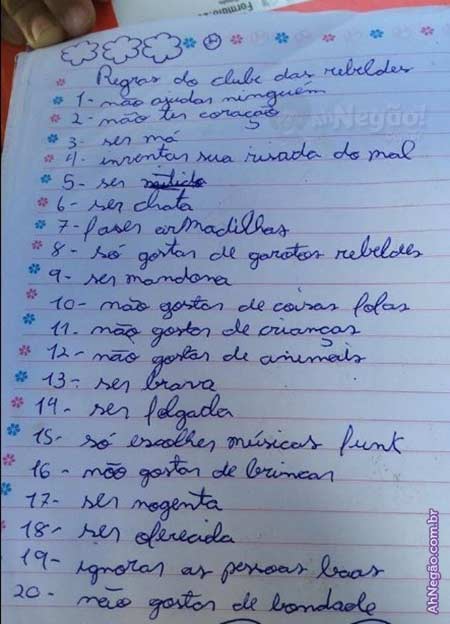 Formulá
Regras do clube das rebeldes
1- não ajudar ninguém
2- não ter coração
3- ser má
4- inventar sua risada do mal
5- ser metida
6- ser chata
7- faser armadilhas
8- só gostar de garotos rebeldes
9- ser mandona
10- não gostar de coisas fofas
11- não gostar de crianças
12- não gostar de animais
13- ser brava
14- ser folgada
15- só escolher músicas funk
16- não gostar de brincar
17- ser nogenta
18- ser oferecida
19- ignorar as pessoas boas
20- não gostar de bondade
AhNegão!
AhNegão.com.br